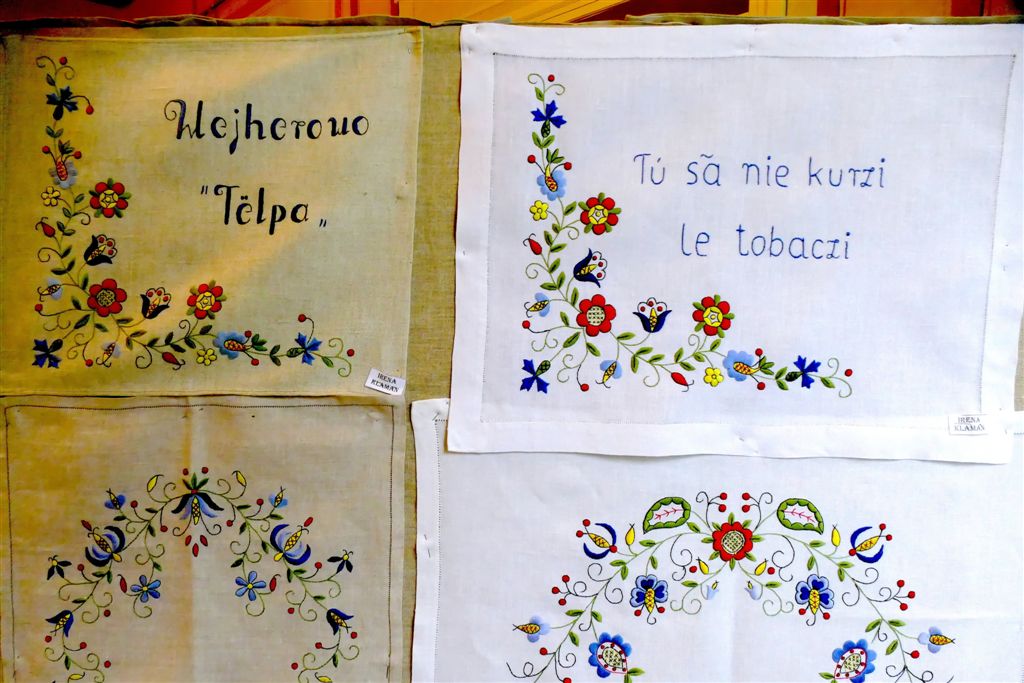 Wejherowo
"Tëlpa„
IRENA
KLAMAN
Tú sã nie kurzi
le tobaczi
IRENA
KLAMAN